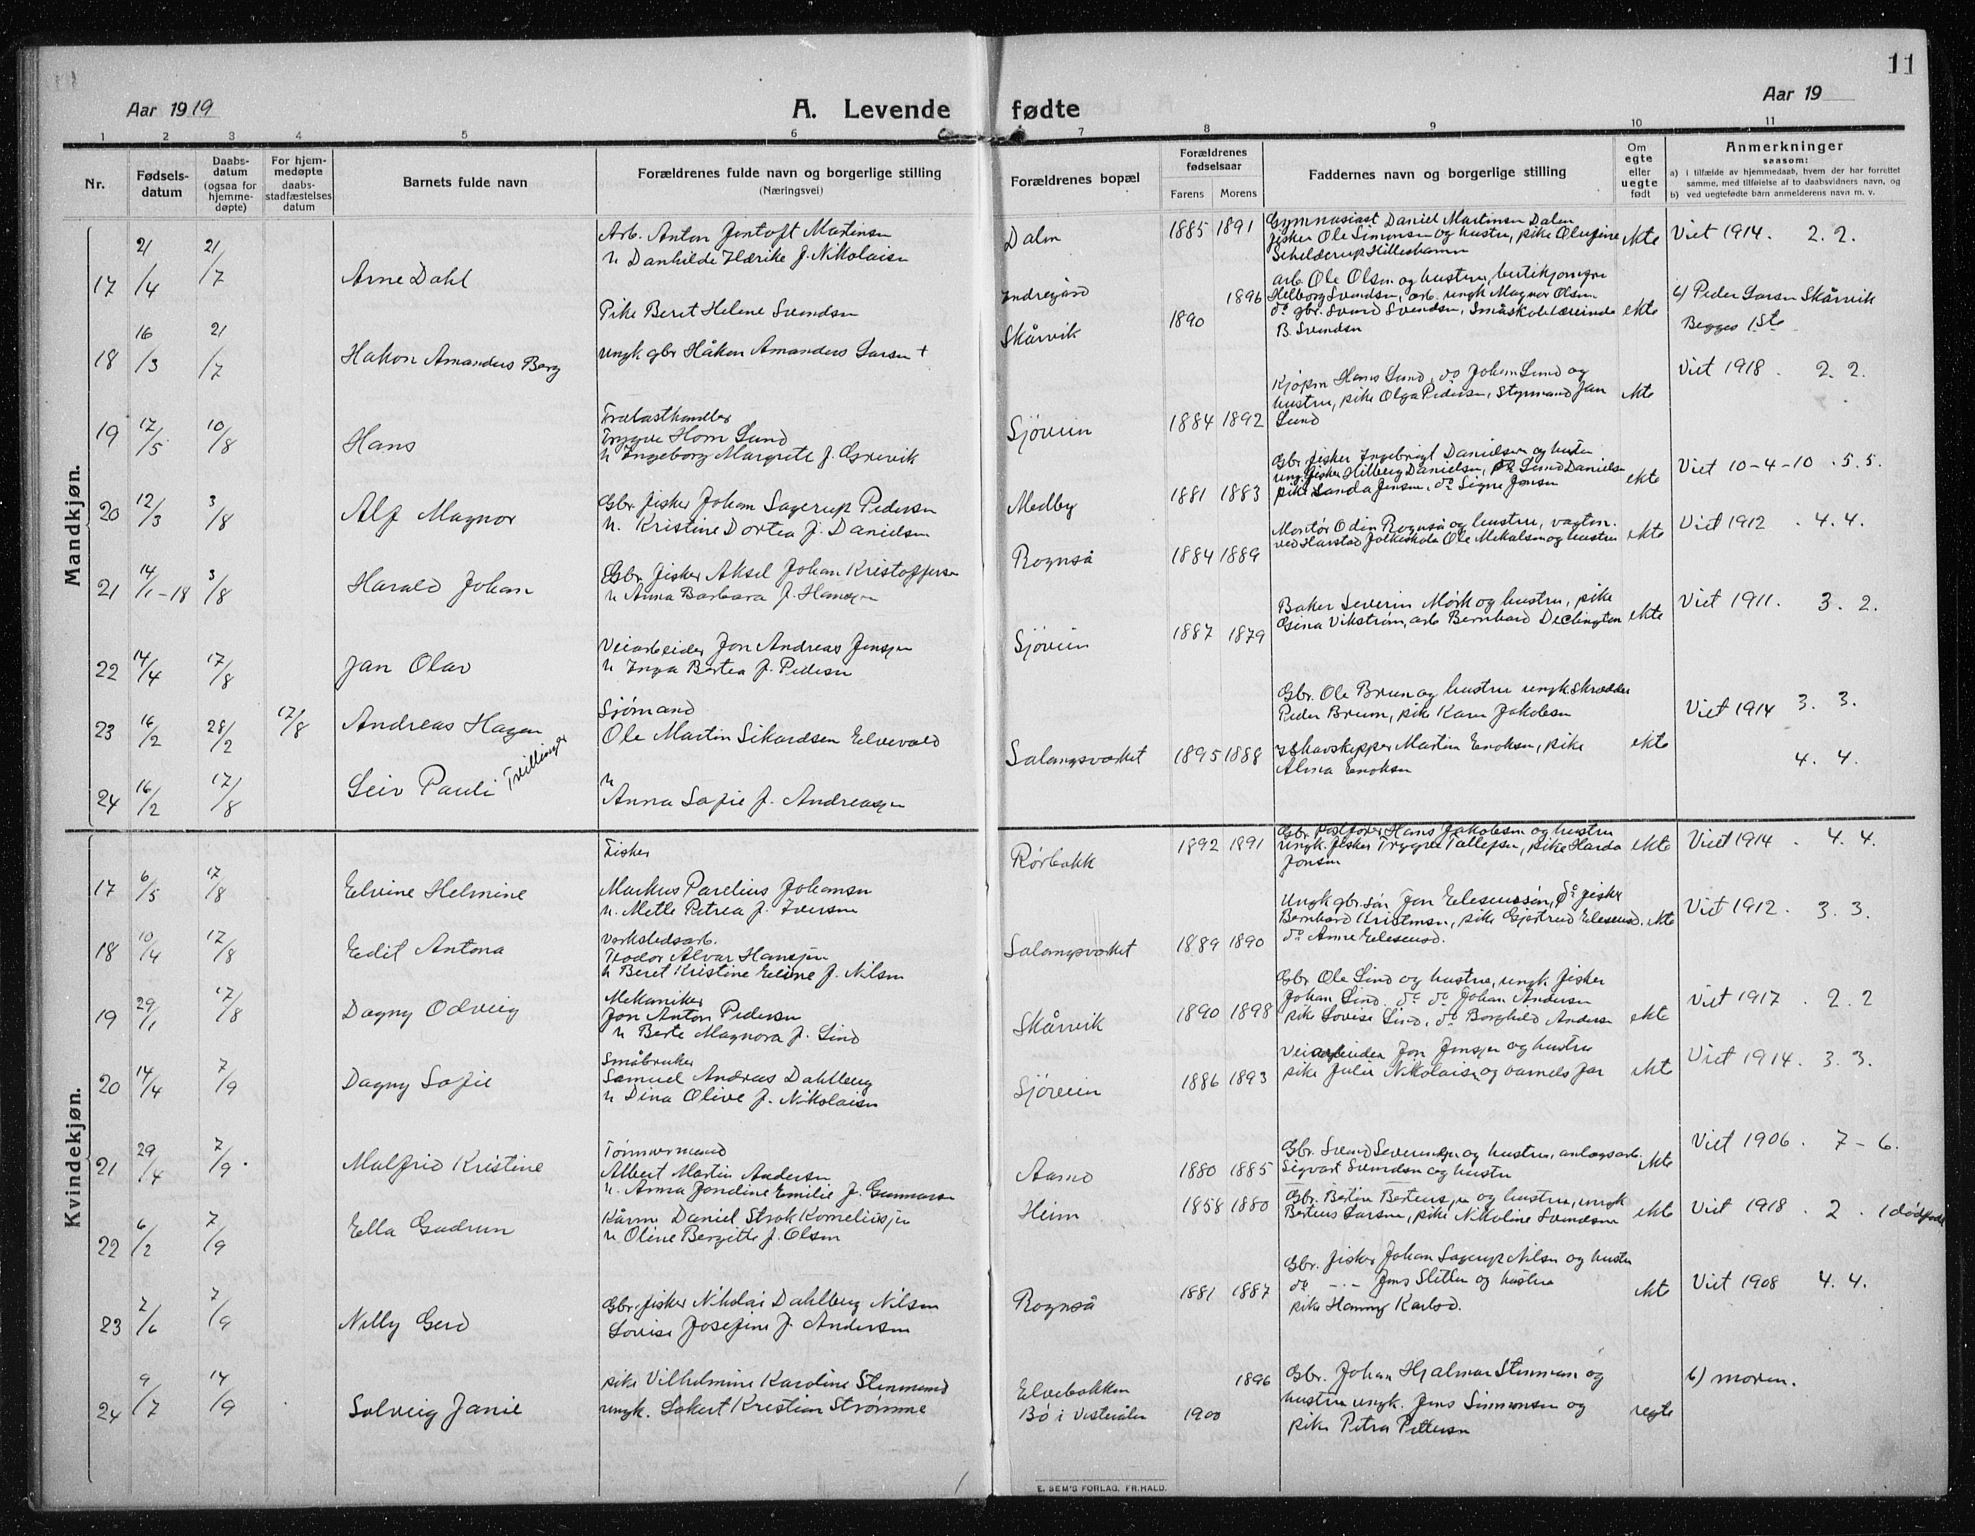 11
Aar 1919
A. Levende fødte
Aar 19
1 2 3 4 5 6 7 8 9 10 11
Nr.
Fødsels-
datum
Daabs-
datum
(ogsaa for
hjemme-
døpte)
For hjem-
medøpte
daabs-
stadfæstelses
datum
Barnets fulde navn
Forældrenes fulde navn og borgerlige stilling
(Næringsvei)
Forældrenes bopæl
Forældrenes
fødselsaar
Farens Morens
Faddernes navn og borgerlige stilling
Om
egte
eller
uegte
født
Anmerkninger
saasom:
a) i tilfælde av hjemmedaab, hvem der har forrettet
samme, med tilføielse af to daabsvidners navn, og
b) ved uegtefødte barn anmelderens navn m. v.
Mandkjøn.
17 21/4 21/7 Arne Dahl
Arb. Anton Jentoft Martinsen
h Danhilde Hærike f. Nikolaisen
Dalen
1885 1891
Gymnasiast Daniel Martinsen Dalen
fisker Ole Simonsen og hustru, pike Olufine
Schelderup Hilleshamn
ekte
Viet 1914. 2. 2.
18 16/3 21/7 Hakon Amandus Berg
Pike Beret Helene Svendsen
ungk gbr Håkon Amandus Larsen +
Indregård
Skårvik
1896
1890
arb. Ole Olsen og hustru,
Helborg Svendsen, arb. ungk Magnor Olsen
do gbr. Svend Svendsen, Småskolelærerinde
B. Svendsen
ekte
b) Peder Larsen Skårvik
Begges 1ste
19 17/5 10/8 Hans
Trælasthandler
Trygve Horn Lund
h Ingeborg Margrete f. Grevik
Sjøveien
1884 1892
Kjøpm Hans Lund, do Johan Lund og
hustru, pike Olga Pedersen, Styrmand Jan
Lund
ekte
Viet 1918 2. 2.
20 12/3 3/8 Alf Magnor
Gbr. fisker Johan Sagerup Pedersen
h. Kristine Dortea f. Danielsen
Medby
1881 1883
Gbr. fisker Ingebrigt Danielsen og hustru
ung. fisker Hilberg Danielsen, do Lund Danielsen
pike Landa Jensen, do Signe Jensen
ekte
Viet 10-4-10 . 5. 5.
21 14/1-18 3/8 Harald Johan
Gbr. fisker Aksel Johan Kristoffersen
h Anna Barbara f. Hansen
Rognså
1884 1889
Montør Odin Rognså og hustru, vagtm.
ved Harstad folkeskole Ole Mikalsen og hustru
ekte
Viet 1912 . 4. 4.
22 14/4 17/8 Jan Olav
Veiarbeider Jon Andreas Jensen
h Inga Bertea f. Pedersen
Sjøveien
1887 1879
Baker Severin Mørk og hustru, pike
Gina Vikstrøm, arb Bernhard Declington
ekte
Viet 1911. 3. 2.
23 16/2 28/2 17/8 Andreas Hagen
Tvillinger
24 16/2 17/8 Leiv Pauli
Sjømand
Ole Martin Sikardsen Elvevold
h
Anna Sofie f. Andreasen
Salangsverket
1895 1888
Gbr. Ole Brun og hustru ungk skrædder
Peder Brun, pike Karen Jakobsen
Martin Enoksen, pike
Alma Enoksen
ekte
Viet 1914 3. 3.
4. 4.
Kvindekjøn.
17 6/5 17/8 Elvine Helmine
Fisker
Markus Parelius Johansen
h. Metle Petrea f. Iversen
Rørbakk
1892 1891
Gbr. Postfører Hans Jakobsen og hustru
ungk. fisker Trygve Tollefsen, pike Harda
Jonsen
ekte
Viet 1914 . 4. 4.
18 10/4 17/8 Edit Antona
Verkstedsarb.
Teodor Alvar Hansen
h Beret Kristine Eline f. Nilsen
Salangsverket
1889 1890
Ungk gbr. søn Jon Eleseussøn, do fisker
Bernhard Kristensen, pike Gjertrud Eleseusd.
do Anne Eleseusd.
ekte
Viet 1912. . 3. 3.
19 29/1 17/8 Dagny Odveig
Mekaniker
Jon Anton Pedersen
h Berte Magnora f. Lind
Skårvik
1890 1898
Gbr Ole Lind og hustru, ungk. fisker
Johan Lind. do do Johan Andersen
pike Lovise Lind, do Borghild Andersen
ekte
Viet 1917 . 2. 2
20 14/4 7/9 Dagny Sofie
Småbruker
Samuel Andreas Dahlberg
h Dina Olive f. Nikolaisen
Sjøveien
1886 1893
Veiarbeider Jon Jensen og hustru
pike Julie Nikolaisen og barnets far
ekte
Viet 1914. 3. 3.
21 29/4 7/9. Malfrid Kristine
Tømmermand
Albert Martin Andersen
h. Anna Jondine Emilie f. Gunnarsen
Aasmo
1880 1885
Gbr. Svend Severinsen og hustru, anlægsarb.
Sigvart Svendsen og hustru
ekte
Viet 1906. 7 - 6.
22 6/2 7/9 Ella Gudrun
Kårm Daniel Strok Korneliussen
h Oline Bergitte f. Olsen
Heim
1858 1880
Gbr. Bertin Bertensen og hustru, ungk
Berteus Larsen, pike Nikoline Svendsen
ekte
Viet 1918 . 2 . 1 dødfødt
23 7/6 7/9 Nelly Gerd
Gbr. fisker Nikolai Dahlberg Nilsen
Lovise Josefine f. Andersen
Rognså
1881 1887
Gbr. fisker Johan Sagerup Nilsen og hustru
do -.- Jens Sletten og hustru
pike Hanny Karlsd.
ekte
Viet 1908 4. 4.
24 9/7 14/9 Solveig Janie
pike Vilhelmine Karoline Stenmund
ungk. Lokert Kristian Strømme
Elvebakken
Bø i Vesterålen
1896
1900
Gbr. Johan Hjalmar Stenmann og
hustru ungk. Jens Simonsen og
pike Petra Pettersen
uegte
b) moren.
E. SEM'S FORLAG, FR.HALD.